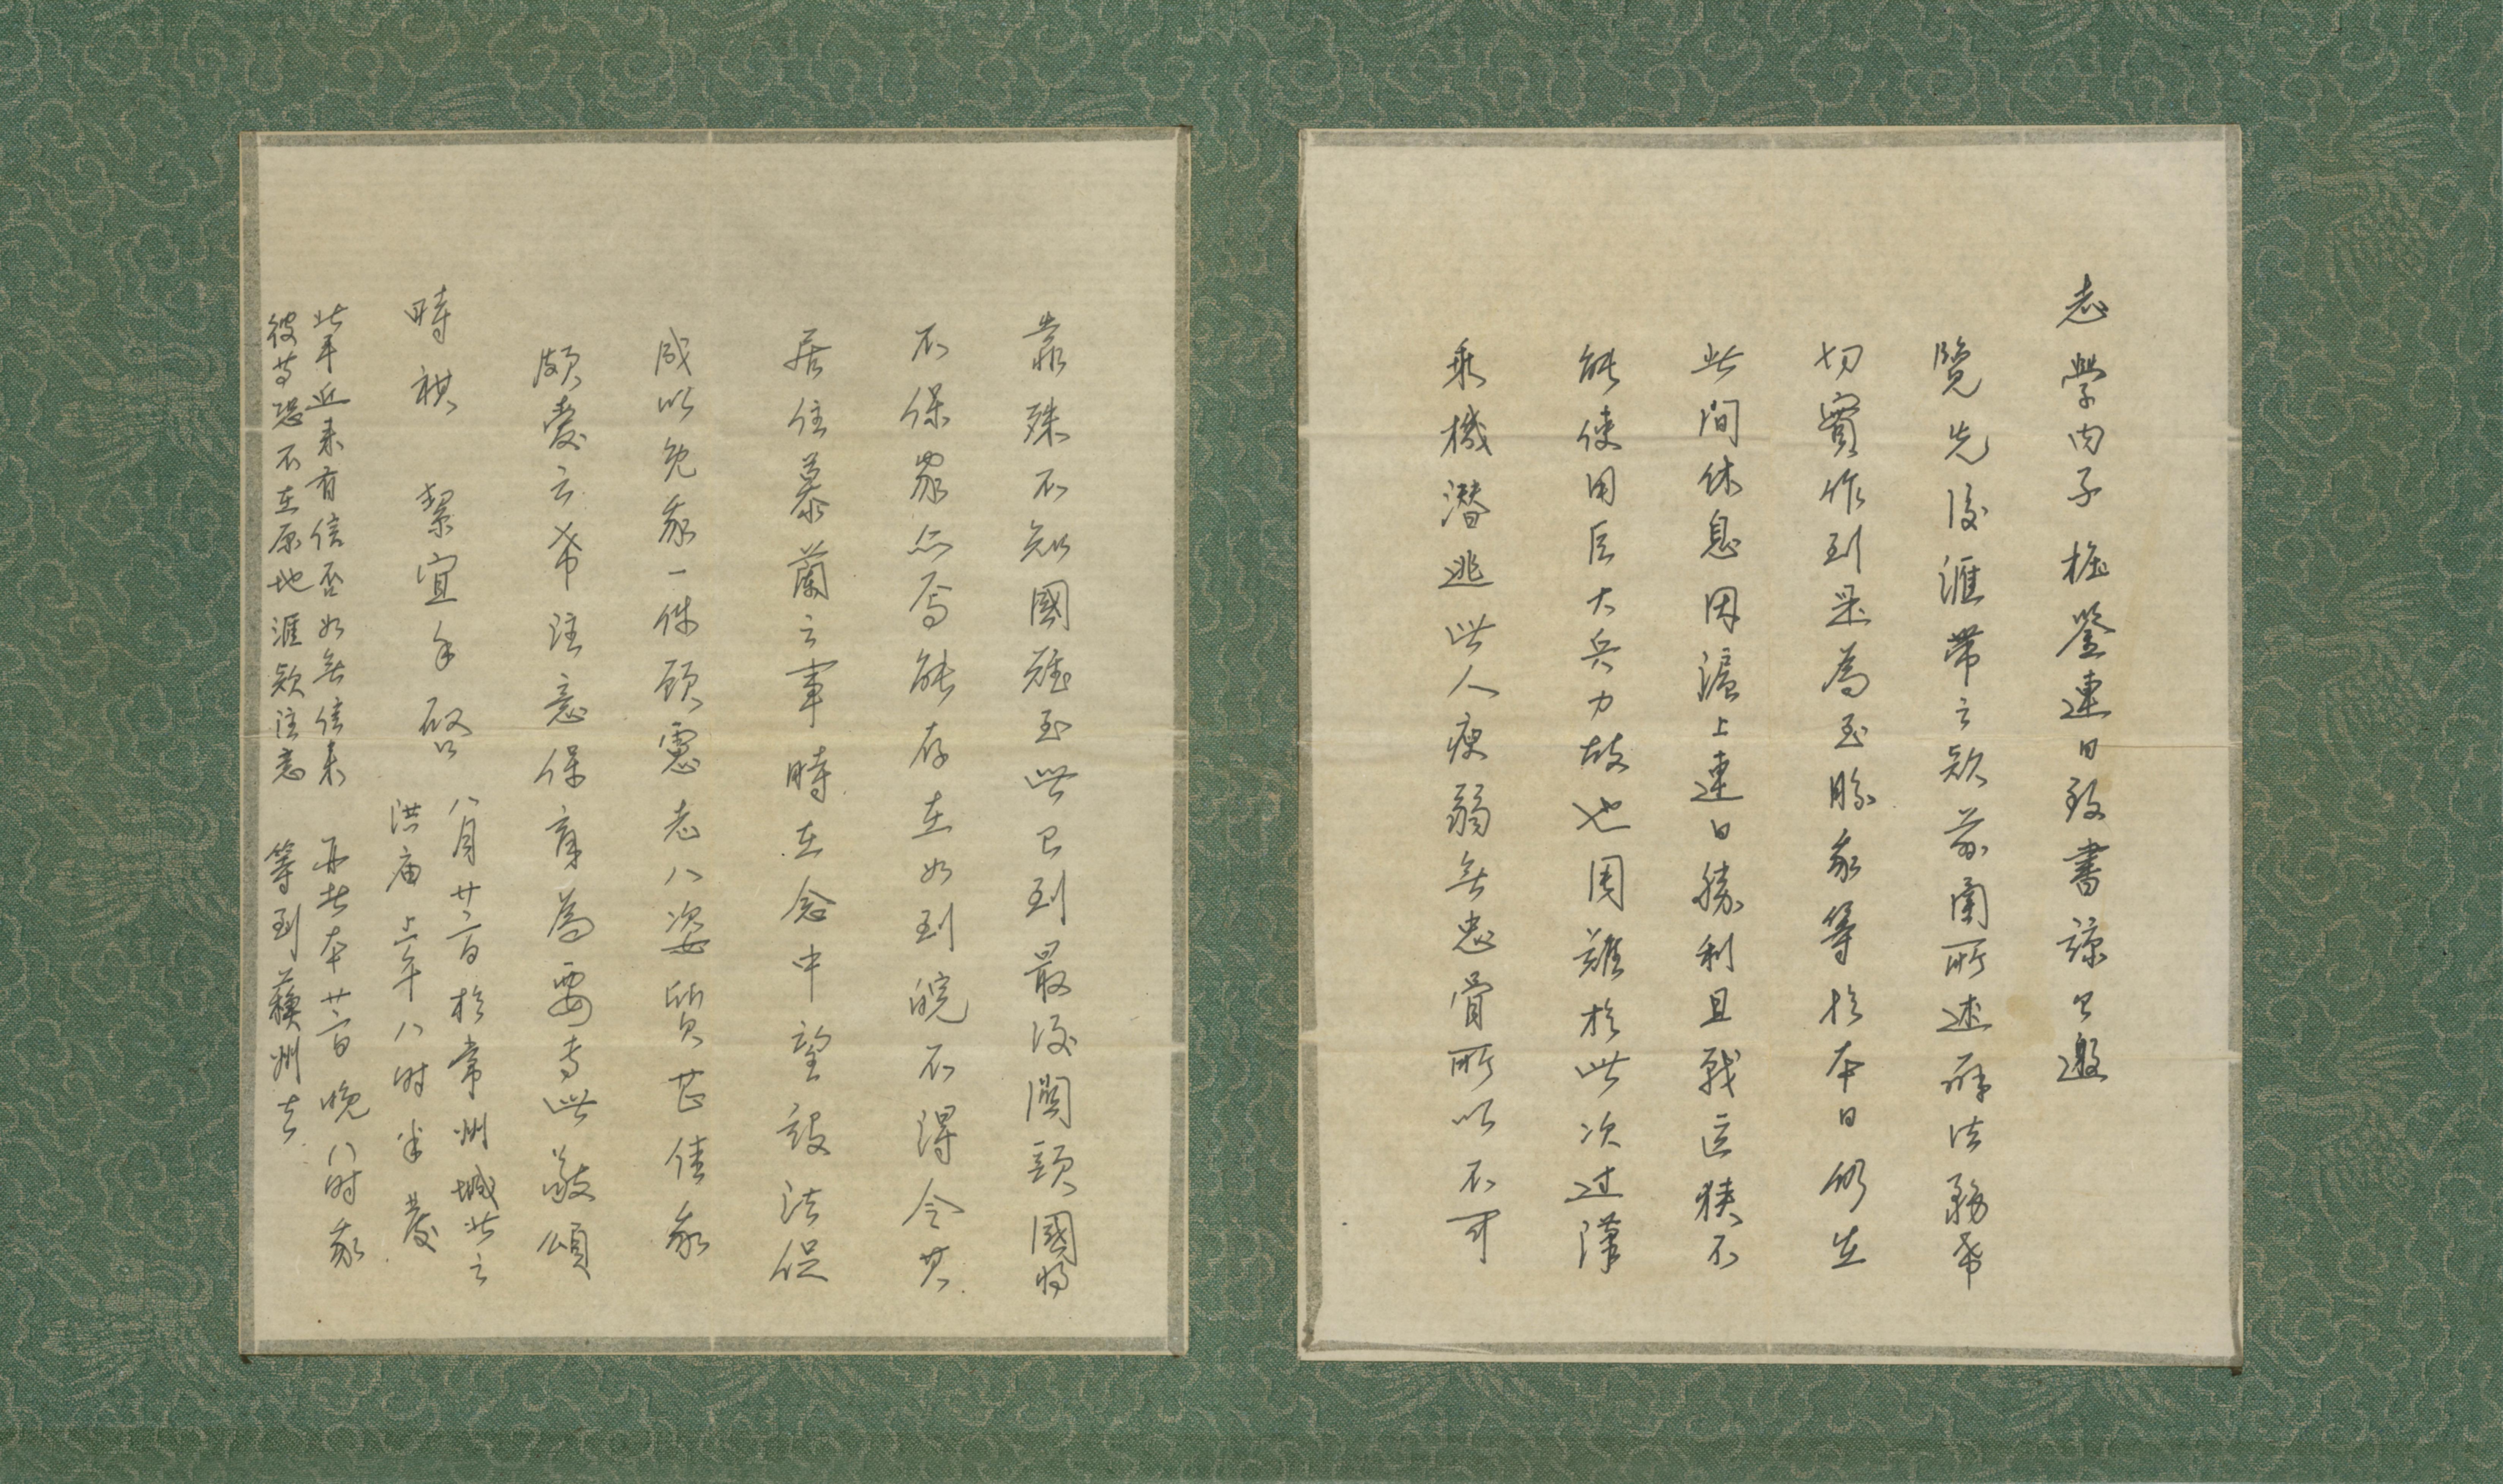 志學內子粧鑒連日致書諒已邀
覽先後滙帶之欵前蘭所述辦法務希
切實作到是為至盼我等於本日仍在
此間休息因滬上連日勝利且戰區狹不
能使用巨大兵力故也周難於此次过漢
乘機潛逃此人瘦弱無忠骨所以不可
靠殊不知國難至此已到最後關頭國將
不保家亦焉能存在如到皖不得令其
居住慕蘭之事時在念中望設法促
成以免我一件顧慮志八姿質甚佳我
頗愛之希注意保育為要专此敬頌
時祺 絜宜手啓
八月廿二日於常州城北之
洪庙上午八时半發
北平近來有信否如無信來
彼等恐不在原地滙欵注意
再者本廿二日晚八时我
等到蘓州去